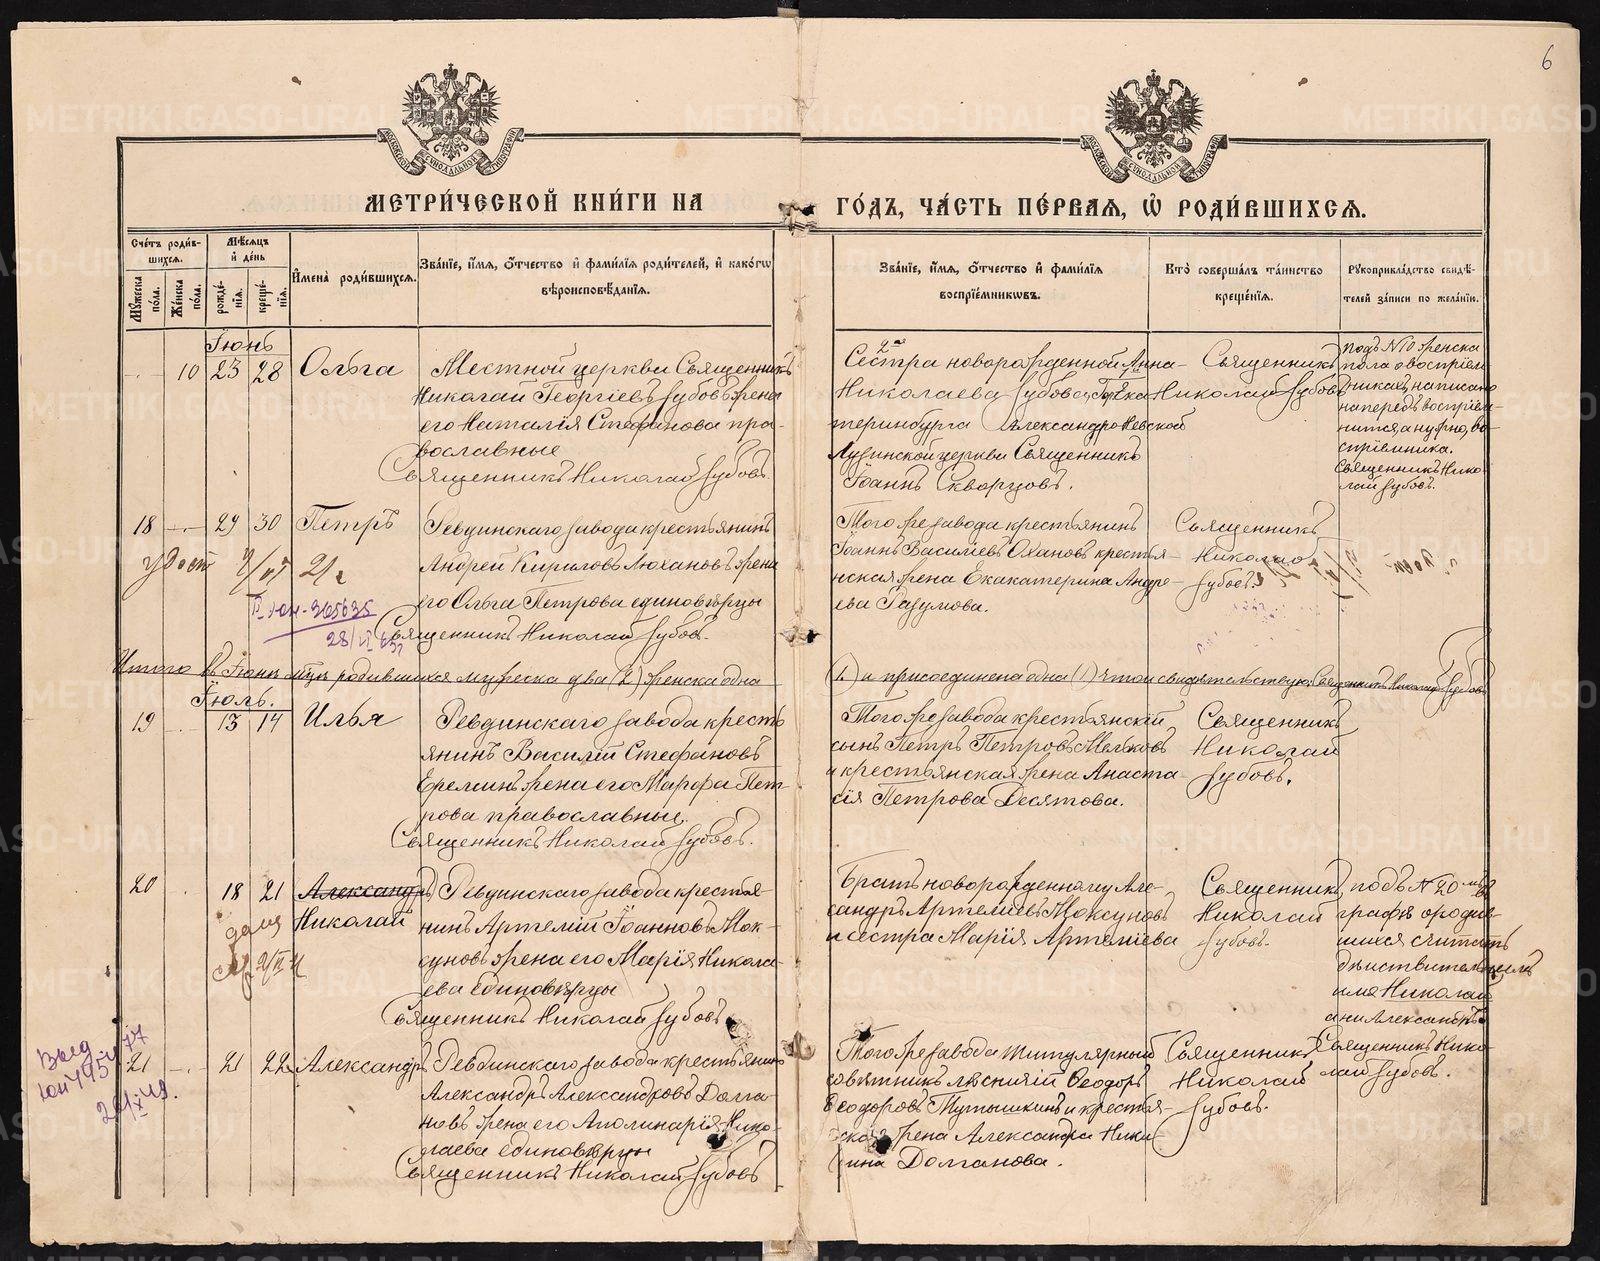 6
МЕТРИ́ЧЕСКОЙ КНИ́ГИ НА
ГО́ДЪ, ЧА́СТЬ ПЕ́РВАЯ, Ѡ РОДИ́ВШИХСЯ.
Сче́тъ роди́в-
шихся.
Мѣ́сяцъ
и҆ де́нь
Мꙋ́жеска по́ла.
Же́нска по́ла.
рожде́-нїѧ.
креще́-нїѧ.
И҆мена̀ роди́вшихся.
Зва́нїе, и҆́мѧ, ѻ҆́тчество и҆ фами́лїѧ роди́телей, и҆ како́гѡ
вѣроисповѣ́данїѧ.
Зва́нїе, и҆́мѧ, ѻ҆́тчество и҆ фами́лїѧ
воспрїе́мникѡвъ.
Кто̀ соверша́лъ та́инство
креще́нїѧ.
Рꙋкоприкла́дство свидѣ́-
телей за́писи по жела́нїю.
Іюнь
10 23 28 Ольга
Местной церкви Священникъ
Николай Георгіевъ Зубовъ жена
его Наталія Стефанова пра-
вославные
Священникъ Николай Зубовъ.
Сестра новорожденной Анна
Николаева Зубова, Ека
теринбурга Александро Невской
Лузинской церкви Священникъ
Іоаннъ Скворцовъ.
Священникъ
Николай Зубовъ
подъ №10 женска
пола о воспріем
никахъ написано
напередъ воспріем-
ница, а нужно, во-
спріемника.
Священникъ Нико
лай Зубовъ.
18 29 30 Петръ
Ревдинскаго завода крестьянинъ
Андрей Кириловъ Люхановъ жена
его Ольга Петрова единоверцы
Священникъ Николай Зубовъ.
Того же завода крестьянинъ
Іоаннъ Василіевъ Охановъ крестья-
нская жена Екакатерина Андре-
ева Разумова.
Священникъ
Николай
Зубовъ.
Итого въ Іюне м-це родившихся мужеска два (2) женска одна
(1) и присоединена одна (1) что и свидетельствую: Священникъ Николай Зубовъ
Іюль.
19 13 14 Илья
Ревдинскаго завода кресть
янинъ Василій Стефановъ
Ереминъ жена его Марфа Пет-
рова православные.
Священникъ Николай Зубовъ.
Того же завода крестьянскій
сынъ Петръ Петровъ Мельковъ
и крестьянская жена Анаста-
сія Петрова Десятова.
Священникъ
Николай
Зубовъ.
20 18 21 Александръ
Николай
Ревдинскаго завода крестья-
нинъ Артемій Іоанновъ Мок-
суновъ жена его Марія Никола-
ева единоверцы
Священникъ Николай Зубовъ
Братъ новорожденнаго Але-
сандръ Артеміевъ Моксуновъ
и сестра Марія Артеміева
Священникъ
Николай
Зубовъ.
подъ №20 въ
графе о родив-
шихся считать
действительнымъ
имя Николай
а не Александръ
Священникъ Нико
лай Зубовъ.
21 21 22 Александръ
Ревдинскаго завода крестьянинъ
Александръ Александровъ Долга-
новъ жена его Аполинарія Нико-
лаева единоверцы
Священникъ Николай Зубовъ
Того же завода титулярный
советникъ леснич​ій Ѳеодоръ
Ѳеодоровъ Тутышкинъ и крестья-
ская жена Александра Ники-
тина Долганова.
Священникъ
Николай
Зубовъ.